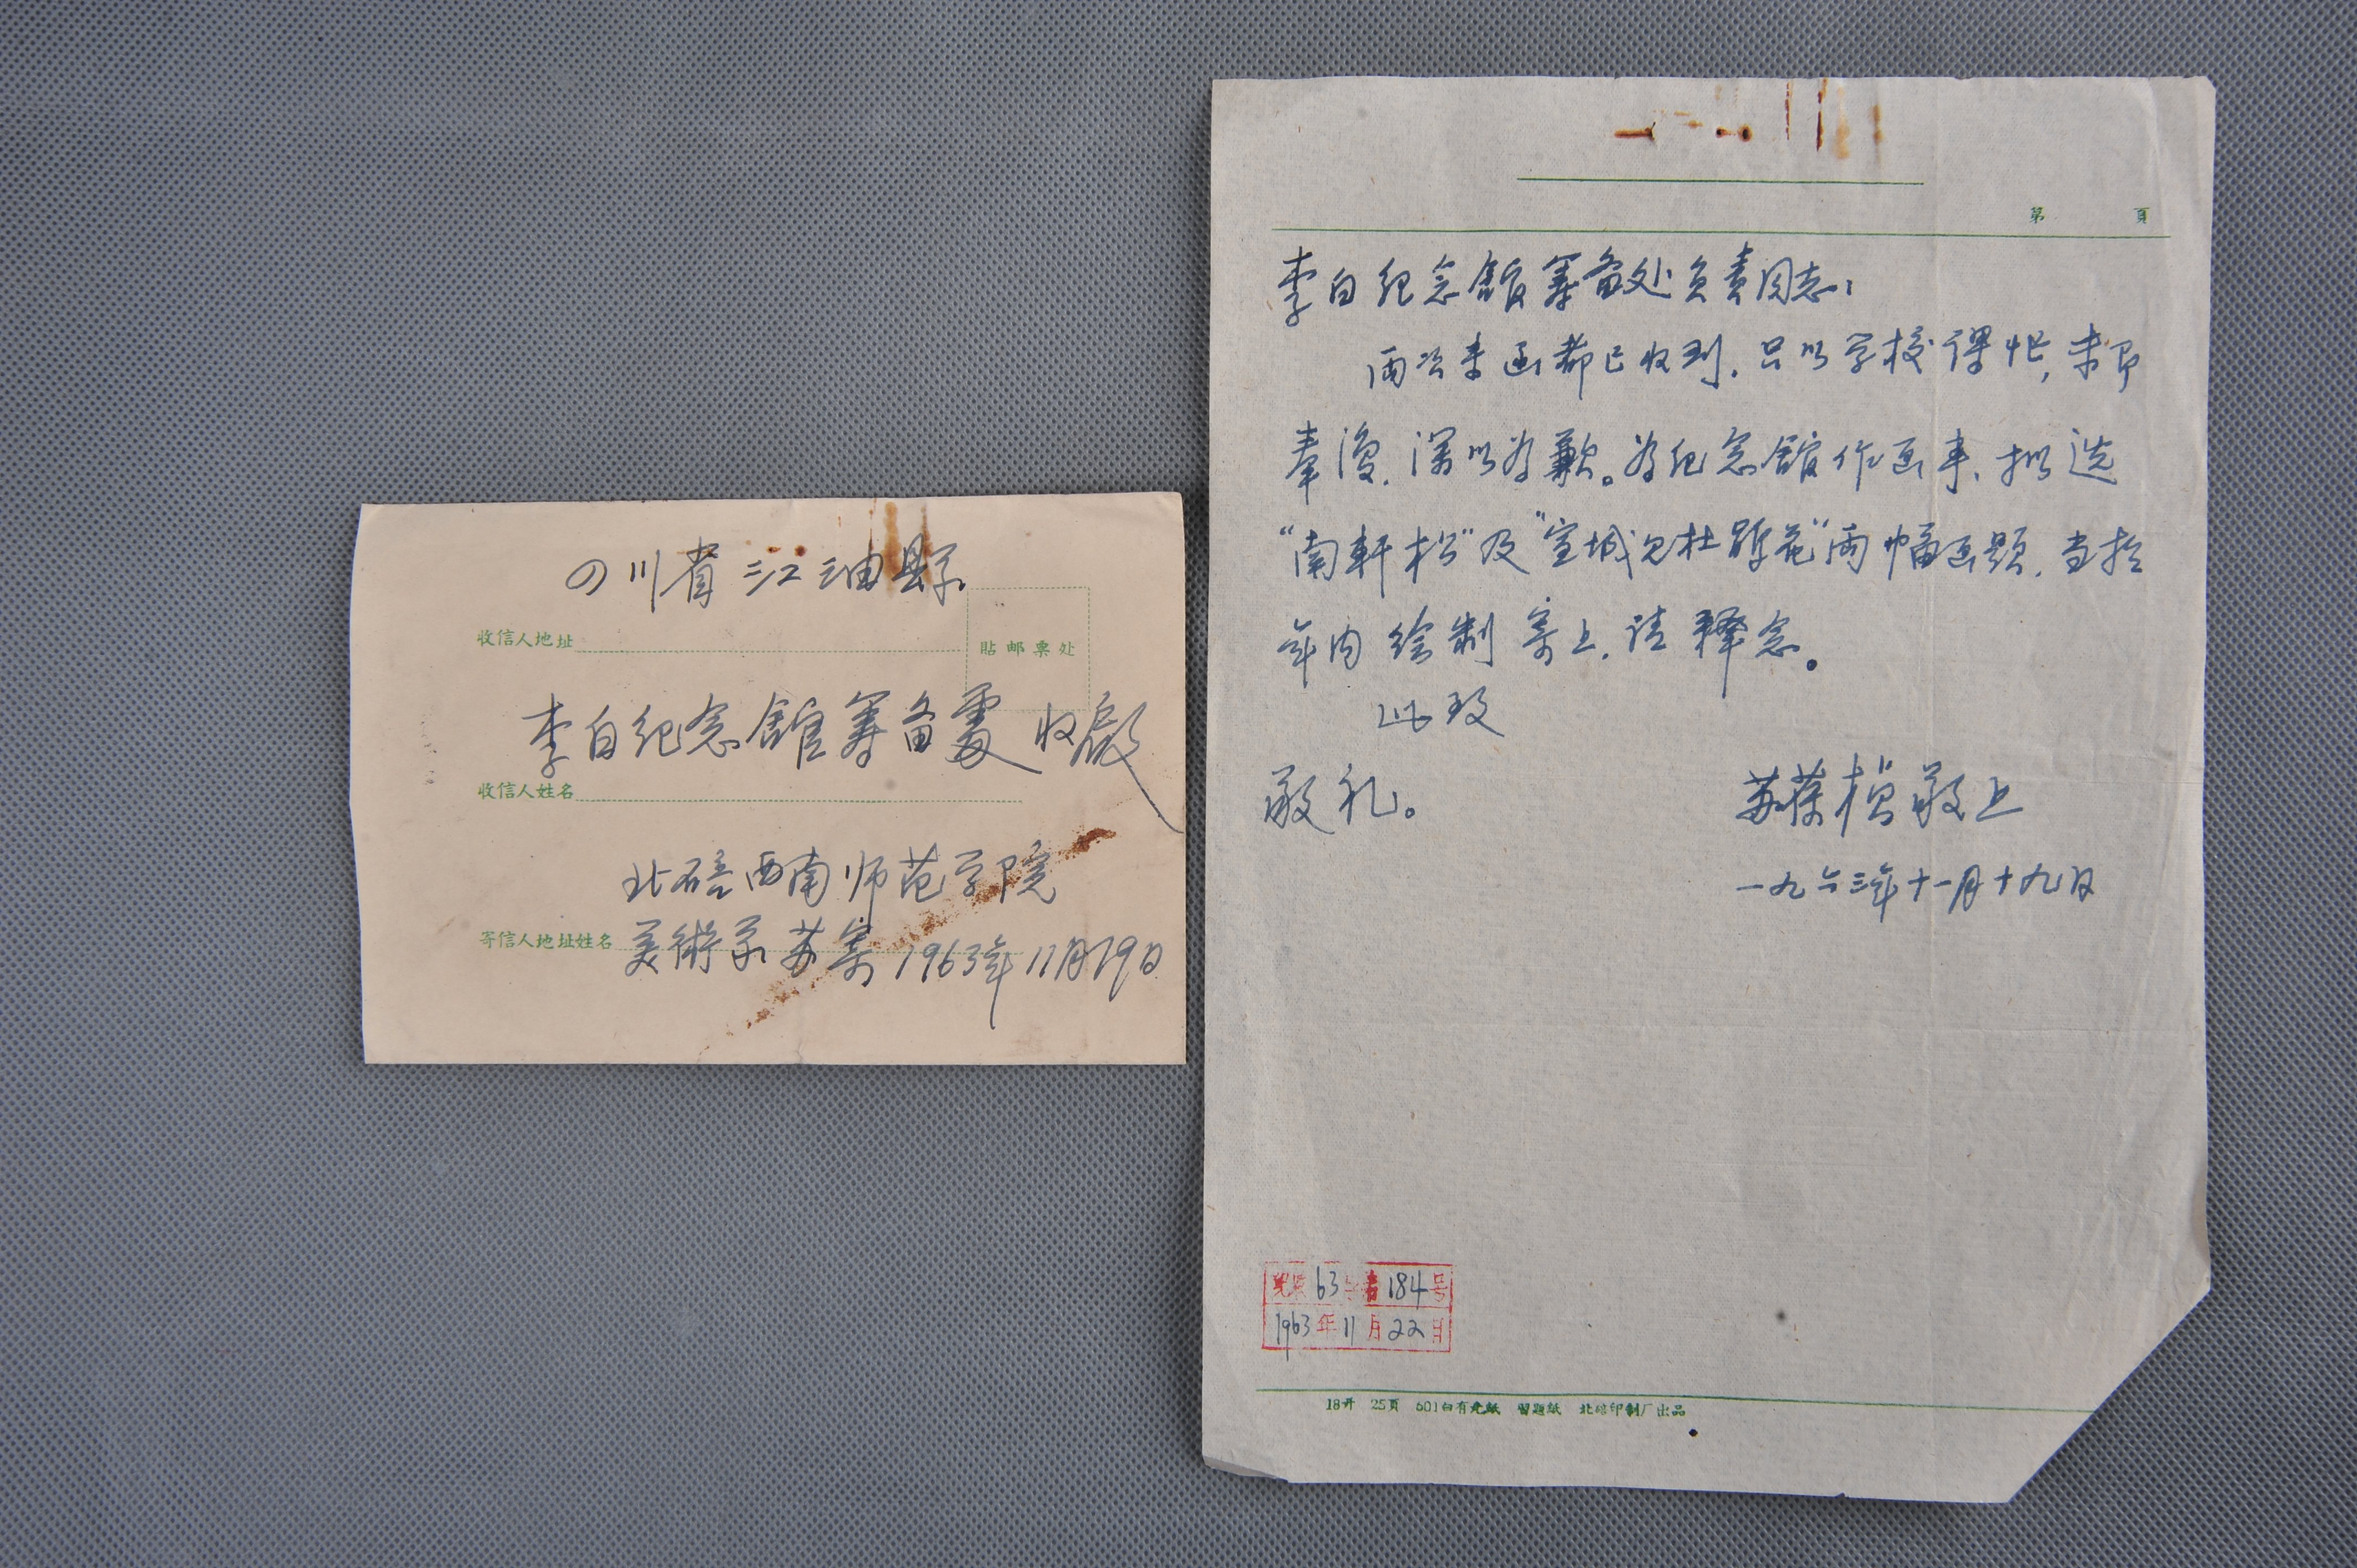 四川省江油縣
收信人地址
貼邮票处
李白纪念館筹备處 收啟
收信人姓名
北碚西南师范学院
寄信人地址姓名
美術系苏寄 1963年11月19日
第 頁
李白纪念館筹备处负责同志：
两次来函都已收到，只以学校课忙，未即
奉復，深以为歉。为纪念館作画事，拟选
“南軒松”及“宣城见杜鹃花”两幅画题，当于
年内绘制寄上，请释念。
此致
敬礼。
苏葆桢敬上
一九六三年十一月十九日
63 184号
1963年11月22日
18开 25頁 601白有光紙 習題紙 北碚印制厂出品